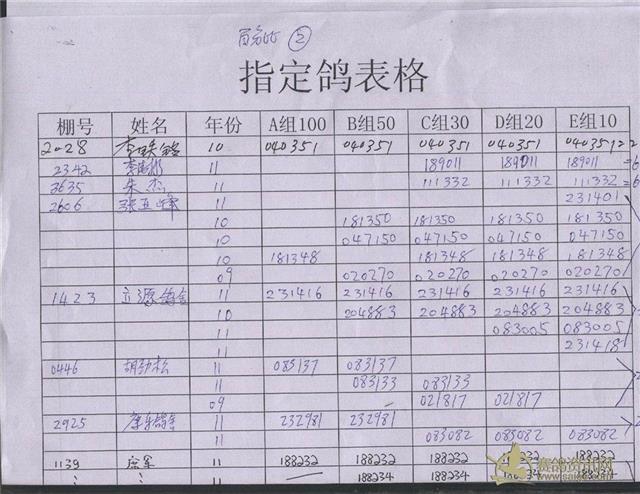 百分比 ②
指定鸽表格
棚号 姓名 年份 A组100 B组50 C组30 D组20 E组10
2028 李铁铭 10 040351 040351 040351 040351 040351
2342 11 189011 189011 189011 =6
3635 朱杰 11 111332 111332 111332 =6
2606 张亚峰 11 231401
10 181350 181350 181350 181350
10 047150 047150 047150 047150
10 181348 181348 181348 181348
09 020270 020270 020270 020270
1423 立源鸽舍 11 231416 231416 231416 231416 231416
10 204883 204883 204883 204883
11 083005 083005
11 231418
0446 胡劲松 11 083137 083137
11 083133 083133
09 021817 021817
2925 11 232981 232981
11 083082 083082 083082
1139 11 188232 188232 188232 188232 188232
11 188234 188234